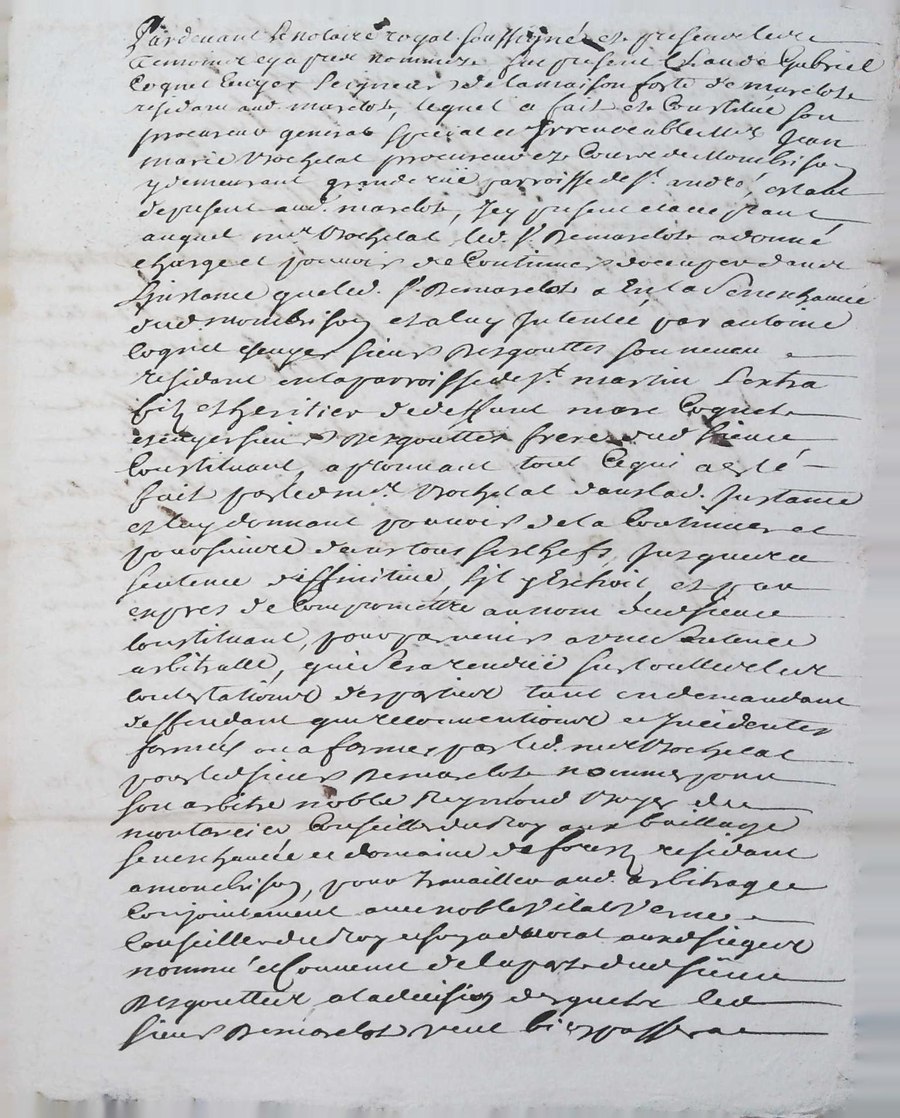 Pardevant le notaire royal soussigné et presens les
temoins cy apres nommés fut present Claude Gabriel
Coquet Ecuyer Seigneur de la maison forte de marclost
residant aud. marclost, lequel a fait et Constitué son
procureur general special et Irrevocable Me Jean
marie Rochelat procureur ez Cours de Montbrison
y demeurant grande rüe parroisse de St. andré, estant
de present aud. marclost, Icy present et acceptant
auquel me Rochelat led. Sr. Demarclost a donné
charge et pouvoir de Continuer doccuper dans
L'instance que led. Sr. Demarclost a En la Senechaucée
dud. montbrison et a luy Intentée par antoine
Coquet Escuyer sieur Desgouttes son neveu
residant en la parroisse de St. martin Lestra
fils et heritier de deffunt marc Coquet
escuyer sieur Desgouttes frere dud. sieur
Constituant, approuvant tout Cequi a esté
fait par led. me. Rochelat dans lad. Instance
et luy donnant pouvoir de la Continuer et
poursuivre dans tous ses chefs, Jusques a
sentence diffinitive, sil y Eschoit, et par
expres de Compromettre au nom dud. sieur
Constituant, pour parvenir a une Sentence
arbitralle, qui sera rendüe sur touttes les
Contestations des parties tant en demandant
deffendant que reconventions et Incidentes
formés ou a former par led. me Rochelat
pour led. sieur Demarclost nommer pour
son arbitre noble Reymond Royer du
montarcier Conseiller du Roy aux bailliage
senechaucée et domaine de forest residant
a monbrison, pour travailler aud. arbitrage
Conjointement avec noble Vital Verne
Conseiller du Roy et son advocat auxd. sieges
nommé et Convenu de la part dud. sieur
Desgouttes a la decision desquels led.
sieur Demarclost veut bien passer